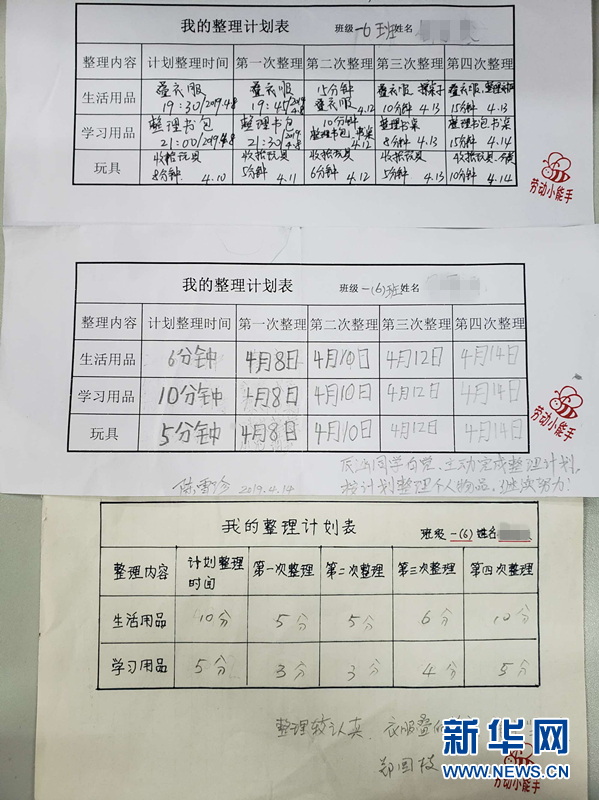 我的整理计划表 班级一6班姓名
整理内容 计划整理时间 第一次整理 第二次整理 第三次整理 第四次整理
生活用品 叠衣服 19:30/2019.4.8 叠衣服 19:45/2019.4.8 15分钟 叠衣服 4.12 叠衣服 10分钟 4.13 叠衣服 15分钟 4.13
学习用品 整理书包 21:00/2019.4.8 整理书包 21:30/2019.4.8 10分钟 整理书包 书桌 4.12 整理书桌 8分钟 4.13 整理书包书桌 15分钟 4.14
玩具 收拾玩具 8分钟 4.10 收拾玩具 5分钟 4.11 收拾玩具 6分钟 4.12 收拾玩具 5分钟 4.13 收拾玩具 10分钟 4.14
劳动小能手
我的整理计划表 班级一(6)班姓名
整理内容 计划整理时间 第一次整理 第二次整理 第三次整理 第四次整理
生活用品 6分钟 4月8日 4月10日 4月12日 4月14日
学习用品 10分钟 4月8日 4月10日 4月12日 4月14日
玩具 5分钟 4月8日 4月10日 4月12日 4月14日
劳动小能手
同学自觉、主动完成整理计划,
2019.4.14 按计划整理个人物品,继续努力!
我的整理计划表 班级一(6)姓名
整理内容 计划整理时间 第一次整理 第二次整理 第三次整理 第四次整理
生活用品 10分 5分 5分 6分 10分
学习用品 5分 3分 3分 4分 5分
整理较认真、衣服叠的
郑国枝
新华网
WWW.NEWS.CN
劳动小能手